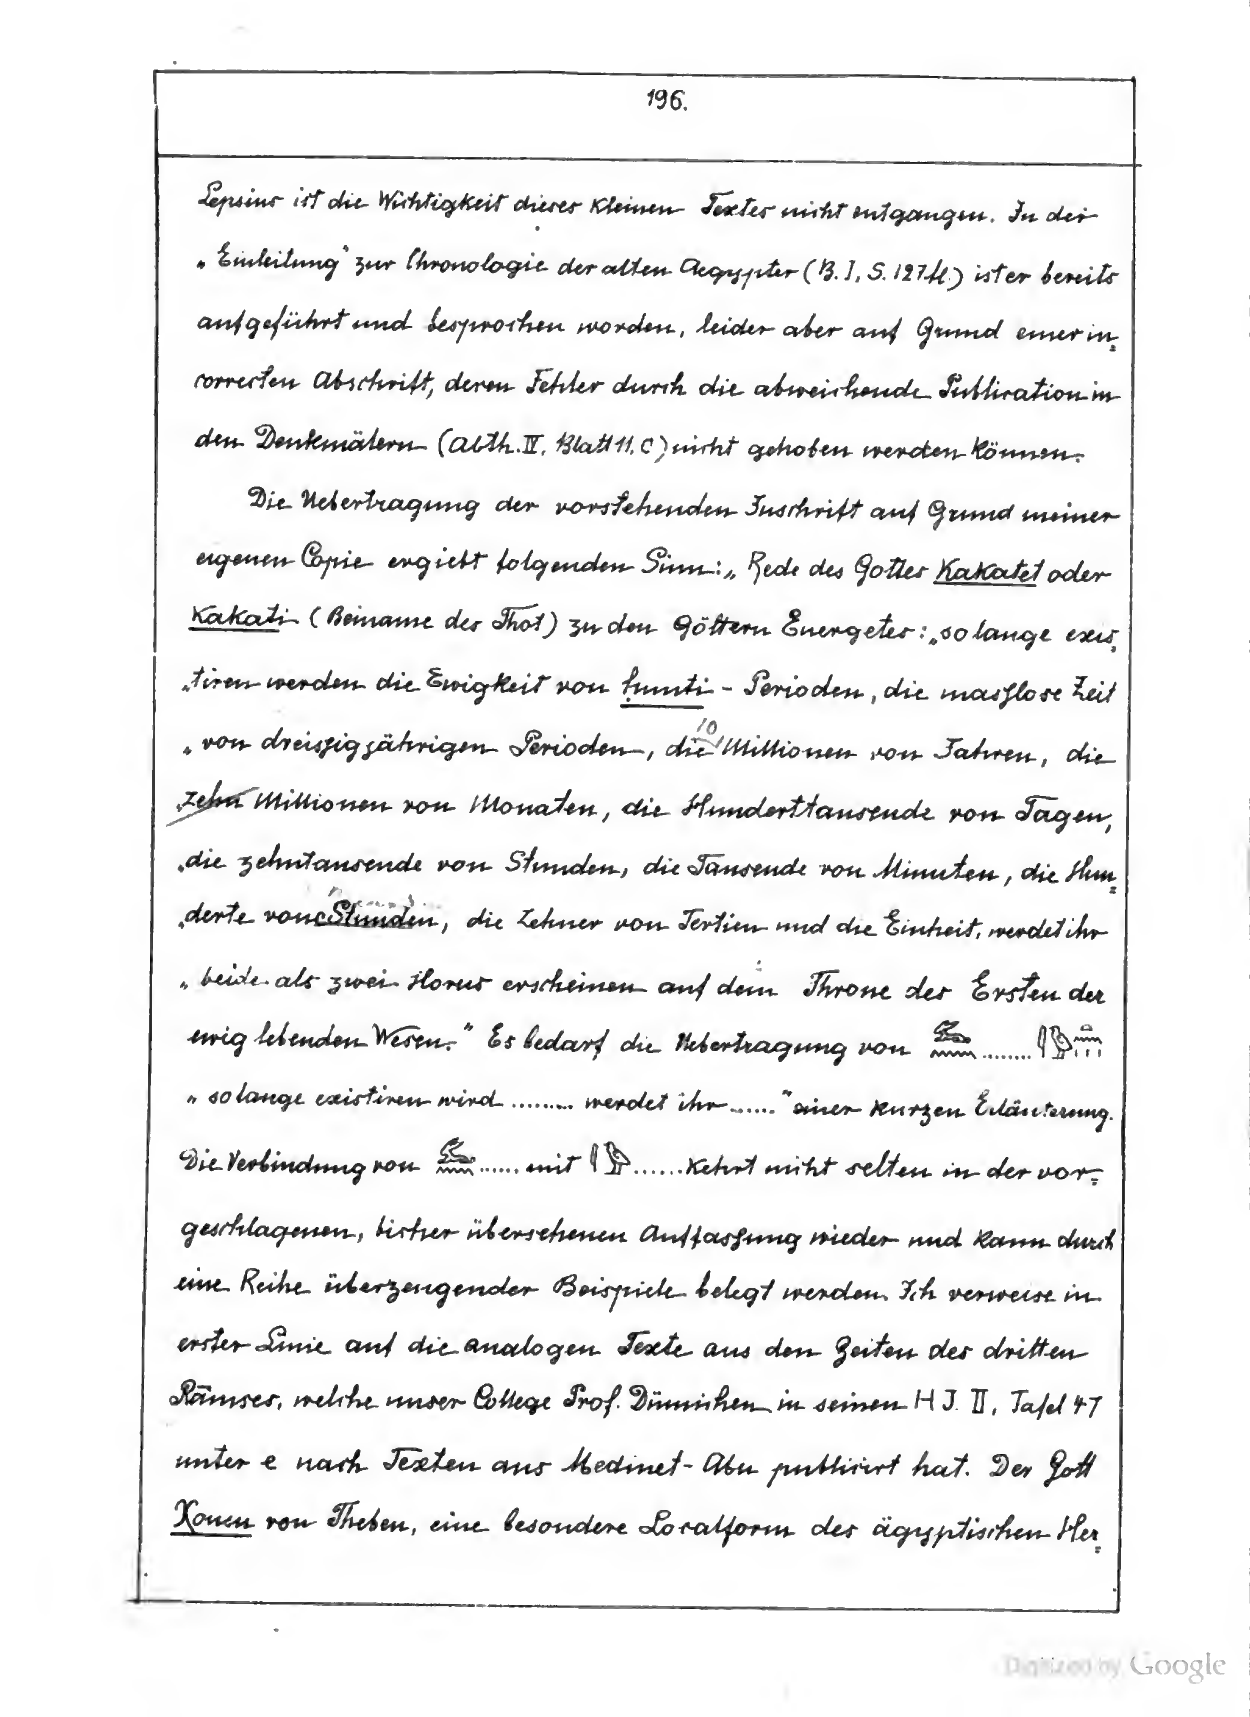 196.
Lepsius ist die Wichtigkeit dieses kleinen Textes nicht entgangen. In der
„Einleitung" zur Chronologie der alten Aegypter (B. I, S. 127 ff.) ist er bereits
aufgeführt und besprochen worden, leider aber auf Grund einer in=
correcten Abschrift, deren Fehler durch die abweichende Publication in
den Denkmälern (Abth. IV, Blatt 11. c) nicht gehoben werden können.
Die Uebertragung der vorstehenden Inschrift auf Grund meiner
eigenen Copie ergiebt folgenden Sinn: „Rede des Gottes Kakatet oder
Kakati (Beiname des Thot) zu den Göttern Euergetes: „so lange exis=
„tiren werden die Ewigkeit von hunti-Perioden, die masslose Zeit
„von dreissigjährigen Perioden, die 10 Millionen von Jahren, die
„zehn Millionen von Monaten, die Hunderttausende von Tagen,
„die zehntausende von Stunden, die Tausende von Minuten, die Hun=
„derte von Stunden, die Zehner von Tertien und die Einheit, werdet ihr
„beide als zwei Horus erscheinen auf dem Throne des Ersten der
ewig lebenden Wesen." Es bedarf die Uebertragung von ........
„so lange existiren wird ......... werdet ihr ......" einer kurzen Erläuterung.
Die Verbindung von ...... mit ...... kehrt nicht selten in der vor=
geschlagenen, bisher übersehenen Auffassung wieder und kann durch
eine Reihe überzeugender Beispiele belegt werden. Ich verweise in
erster Linie auf die analogen Texte aus den Zeiten des dritten
Râmses, welche unser College Prof. Dümichen in seinen H J. II, Tafel 47
unter e nach Texten aus Medinet-Abu publicirt hat. Der Gott
Xonsu von Theben, eine besondere Localform des ägyptischen Her=
Digitized by Google